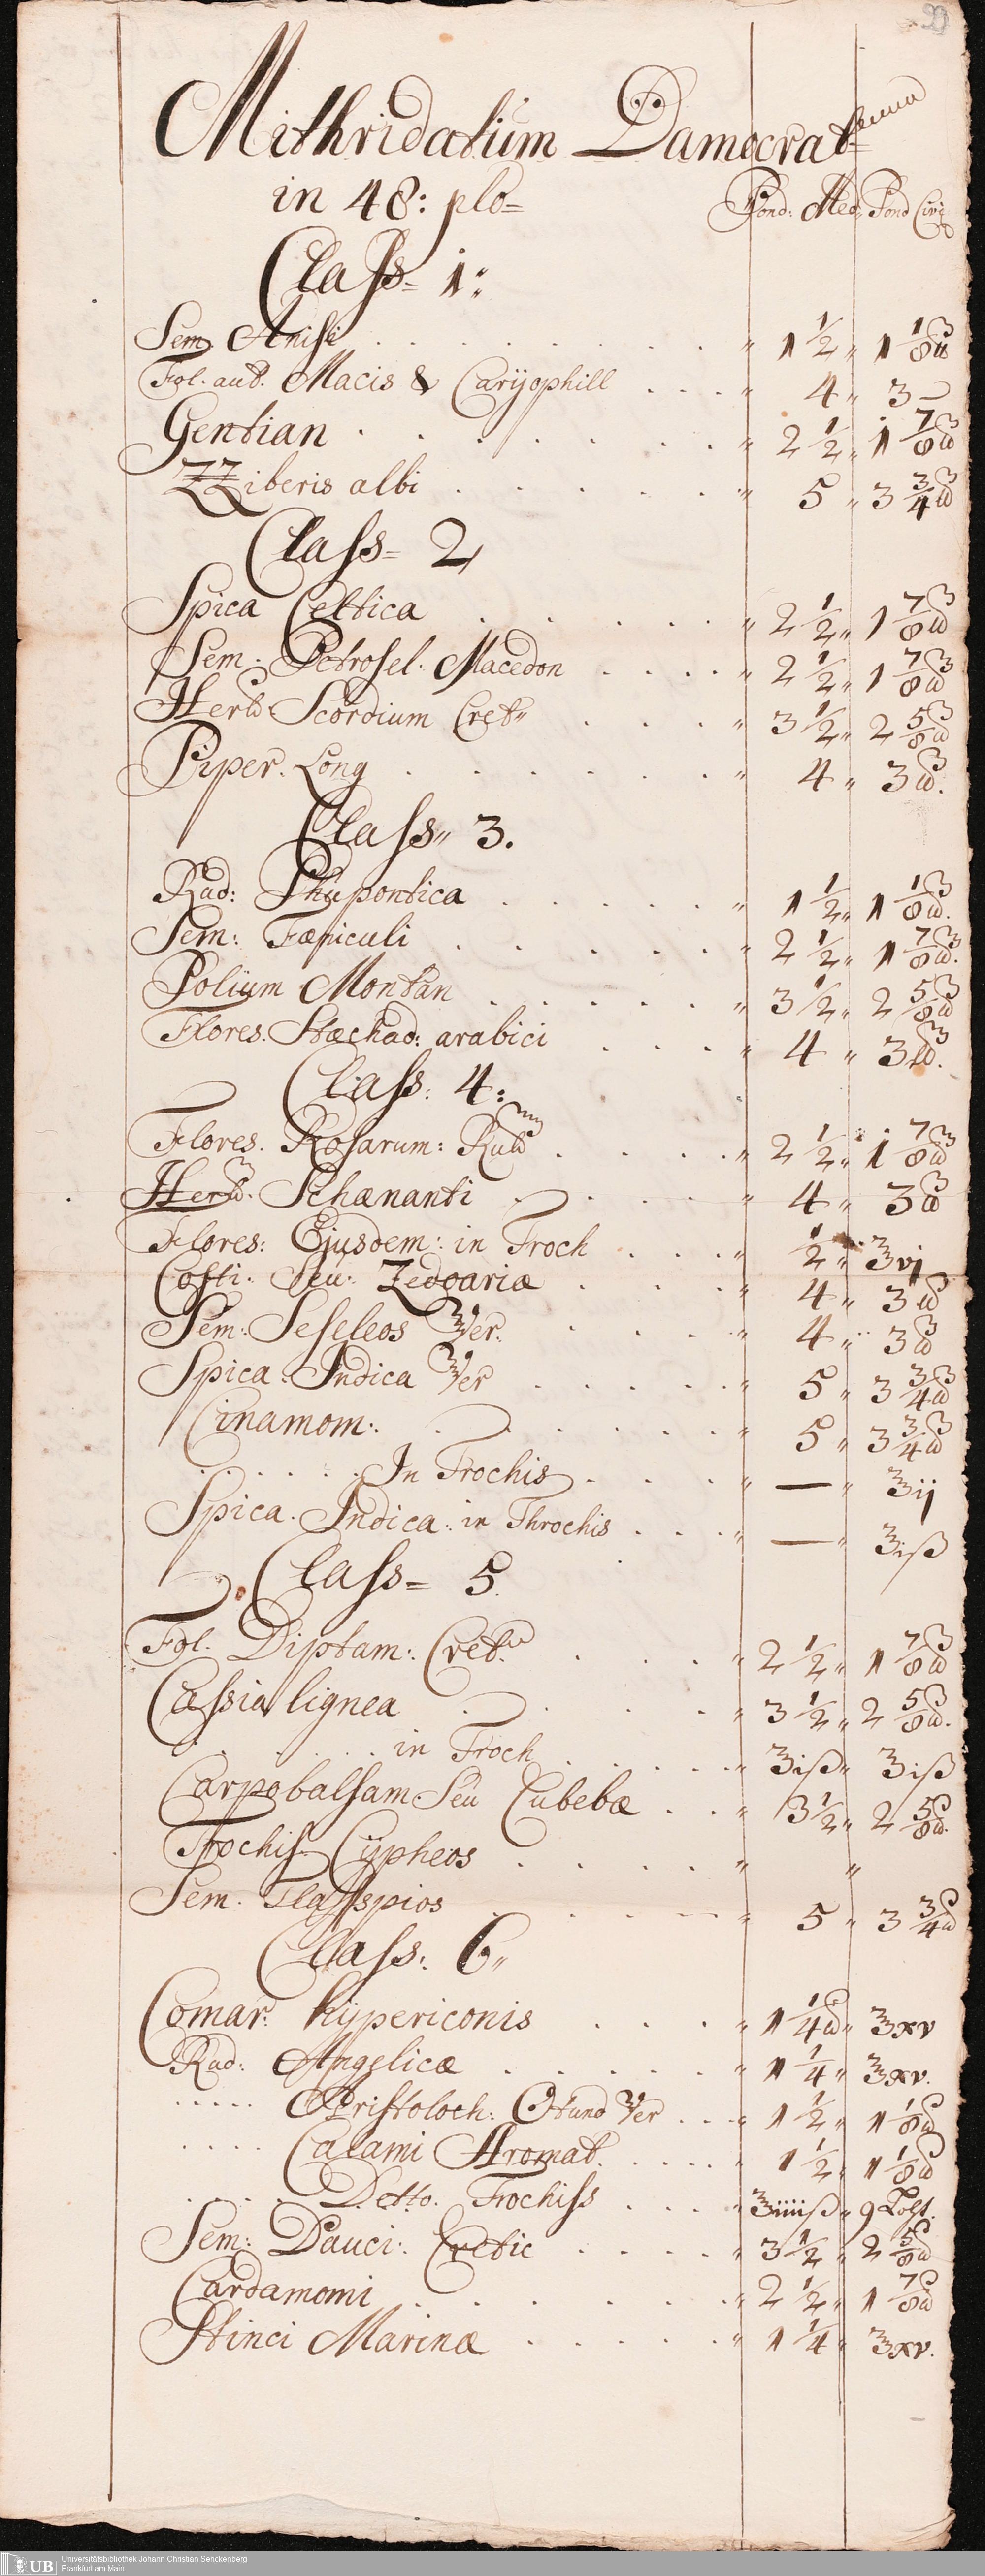 Mithridatium Damocrat=
in 48: plo=
Pond: Med: Pond Civi
Class= 1:
Sem Anisi " 1 1/2 " 1 1/8 ℔
Fol. aut. Macis & Carijophill " 4 " 3 -
Gentian " 2 1/2 " 1 7/8 ℔
ZZiberis albi " 5 " 3 3/4 ℔
Class= 2
Spica Celtica " 2 1/2 " 1 7/8 ℔
Sem. Petrosel. Macedon " 2 1/2 " 1 7/8 ℔
Herb Scordium Cret" " 3 1/2 " 2 5/8 ℔
Piper. Long " 4 " 3 ℔.
Class" 3.
Rad: Rhapontica " 1 1/2 " 1 1/8 ℔.
Sem: Fœniculi " 2 1/2 " 1 7/8 ℔.
Polium Montan " 3 1/2 " 2 5/8 ℔
Flores. Stœchad: arabici " 4 " 3 ℔.
Class: 4:
Flores. Rosarum: Rub " 2 1/2 " 1 7/8 ℔
Herb. Schœnanti " 4 " 3 ℔
Flores: Ejusdem: in Troch " 1/2 " ℥vj
Costi. Seu. Zedoariæ " 4 " 3 ℔
Sem: Seseleos Ver. " 4 " 3 ℔
Spica Indica Ver " 5 " 3 3/4 ℔
Cinamom: " 5 " 3 3/4 ℔
In Trochis " — " ℥ij
Spica. Indica: in Throchis " — " ℥iß
Class= 5
Fol. Diptam: Cret. " 2 1/2 " 1 7/8 ℔
Cassia lignea " 3 1/2 " 2 5/8 ℔.
in Troch " ℥iß " ℥iß
Carpobalsam Seu Cubebæ " 3 1/2 " 2 5/8 ℔.
Trochis. Cÿpheos " "
Sem. Tlasspios " 5 " 3 3/4 ℔
Class: 6"
Comar. hÿpericonis " 1 1/4 ℔ " ℥xv
Rad: Angelicæ " 1 1/4 " ℥xv.
Aristoloch: Ver " 1 1/2 " 1 1/8 ℔
Calami Aromat. " 1 1/2 " 1 1/8 ℔
Detto. Trochiss " ℥iiiiß " 9 Loht.
Sem: Dauci: Cretic " 3 1/2 " 2 5/8 ℔
Cardamomi " 2 1/2 " 1 7/8 ℔
Stinci Marinæ " 1 1/4 " ℥xv.
UB Universitätsbibliothek Johann Christian Senckenberg
Frankfurt am Main